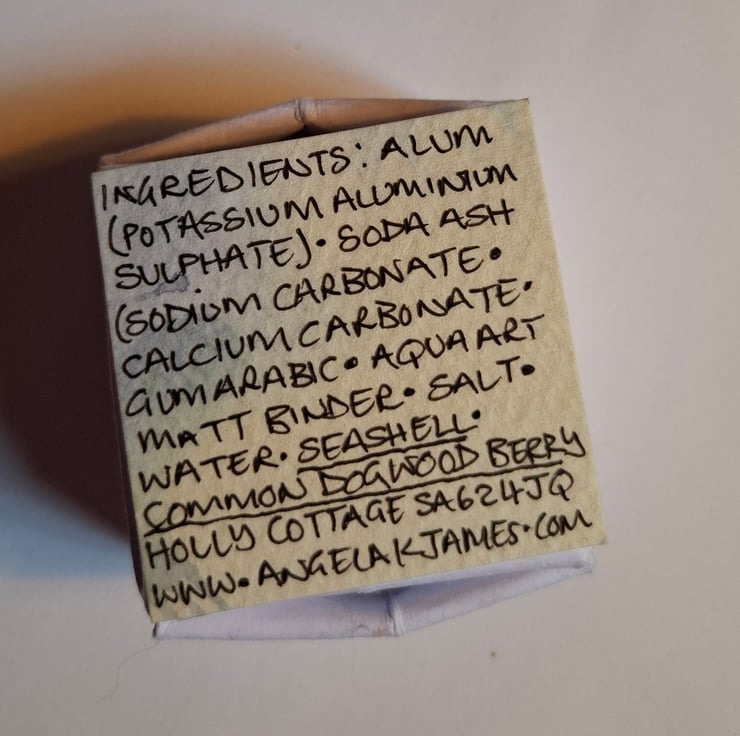 INGREDIENTS: ALUM
(POTASSIUM ALUMINIUM
SULPHATE)• SODA ASH
(SODIUM CARBONATE•
CALCIUM CARBONATE•
GUM ARABIC• AQUA ART
MATT BINDER• SALT•
WATER• SEASHELL•
COMMON DOGWOOD BERRY
HOLLY COTTAGE SA624JQ
WWW•ANGELAKJAMES•COM